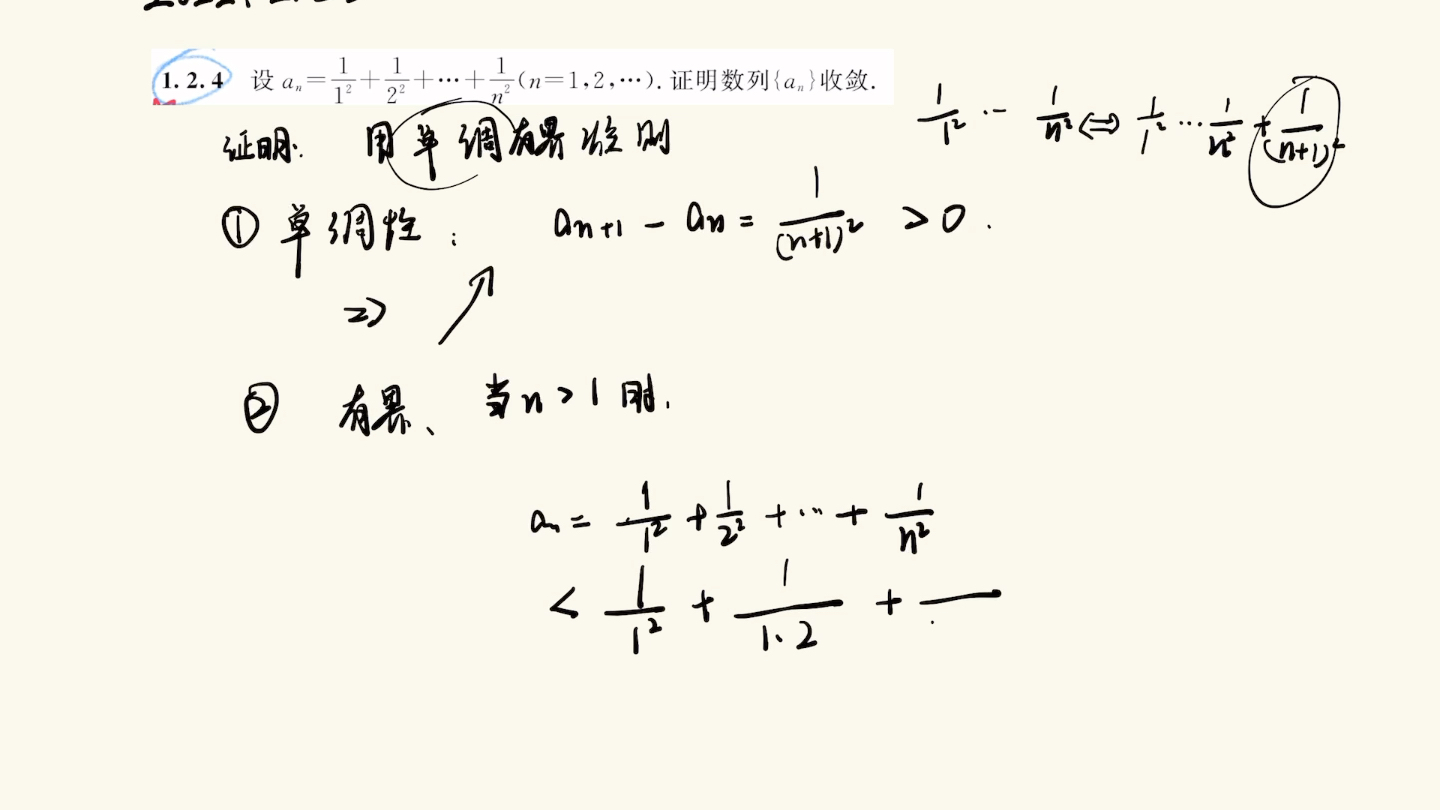 1.2.4 设 aₙ = 1/1² + 1/2² + ⋯ + 1/n² (n=1,2,⋯). 证明数列{aₙ}收敛.
1/1² ⋯ 1/n² ⇔ 1/1² ⋯ 1/n² + 1/(n+1)²
证明: 用单调有界准则
① 单调性: aₙ₊₁ - aₙ = 1/(n+1)² > 0.
⇒ ↗
② 有界、当 n > 1 时,
aₙ = 1/1² + 1/2² + ⋯ + 1/n²
< 1/1² + 1/1·2 +